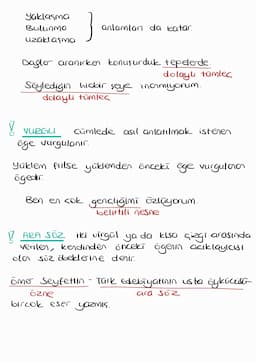 Yaklaşma
Bulunma
Uzaklaşma
anlamları da katar.
Dağlar aranırken konuşurduk tepelerde
dolaylı tümleç
Söylediğin hiçbir şeye inanmıyorum.
dolaylı tümleç
VURGU cümlede asıl anlatılmak istenen
öge vurgulanır.
Yüklem fiilse yüklemden önceki öge vurgulanan
ögedir.
Ben en çok gençliğimi özlüyorum.
belirtili nesne
ARA SÖZ iki virgül ya da kısa çizgi arasında
verilen, kendinden önceki ögenin açıklayıcısı
olan söz öbeklerine denir.
Ömer Seyfettin - Türk edebiyatının usta öykücüsü-
özne
ara söz
birçok eser yazmış.